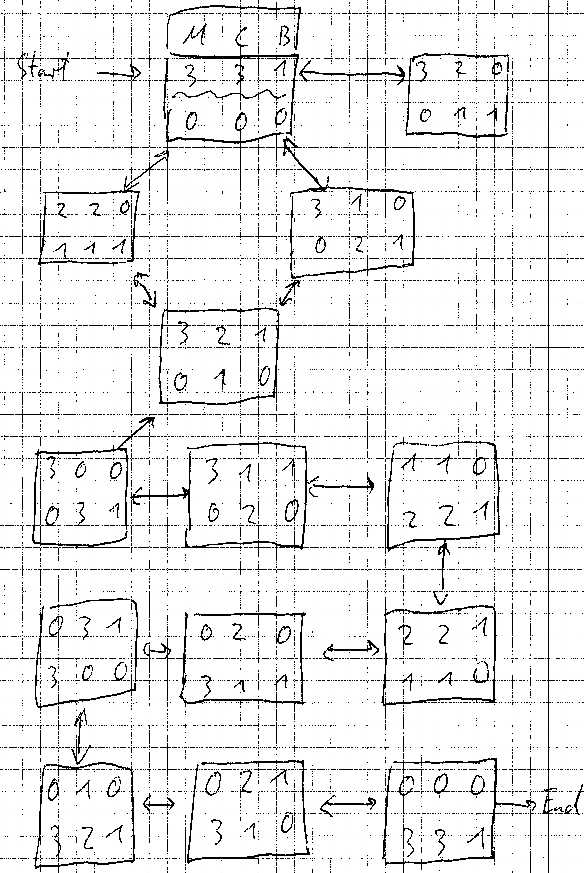 M C B
Start 3 3 1
0 0 0
3 2 0
0 1 1
2 2 0
1 1 1
3 1 0
0 2 1
3 2 1
0 1 0
3 0 0
0 3 1
3 1 1
0 2 0
1 1 0
2 2 1
0 3 1
3 0 0
0 2 0
3 1 1
2 2 1
1 1 0
0 1 0
3 2 1
0 2 1
3 1 0
0 0 0
3 3 1
End